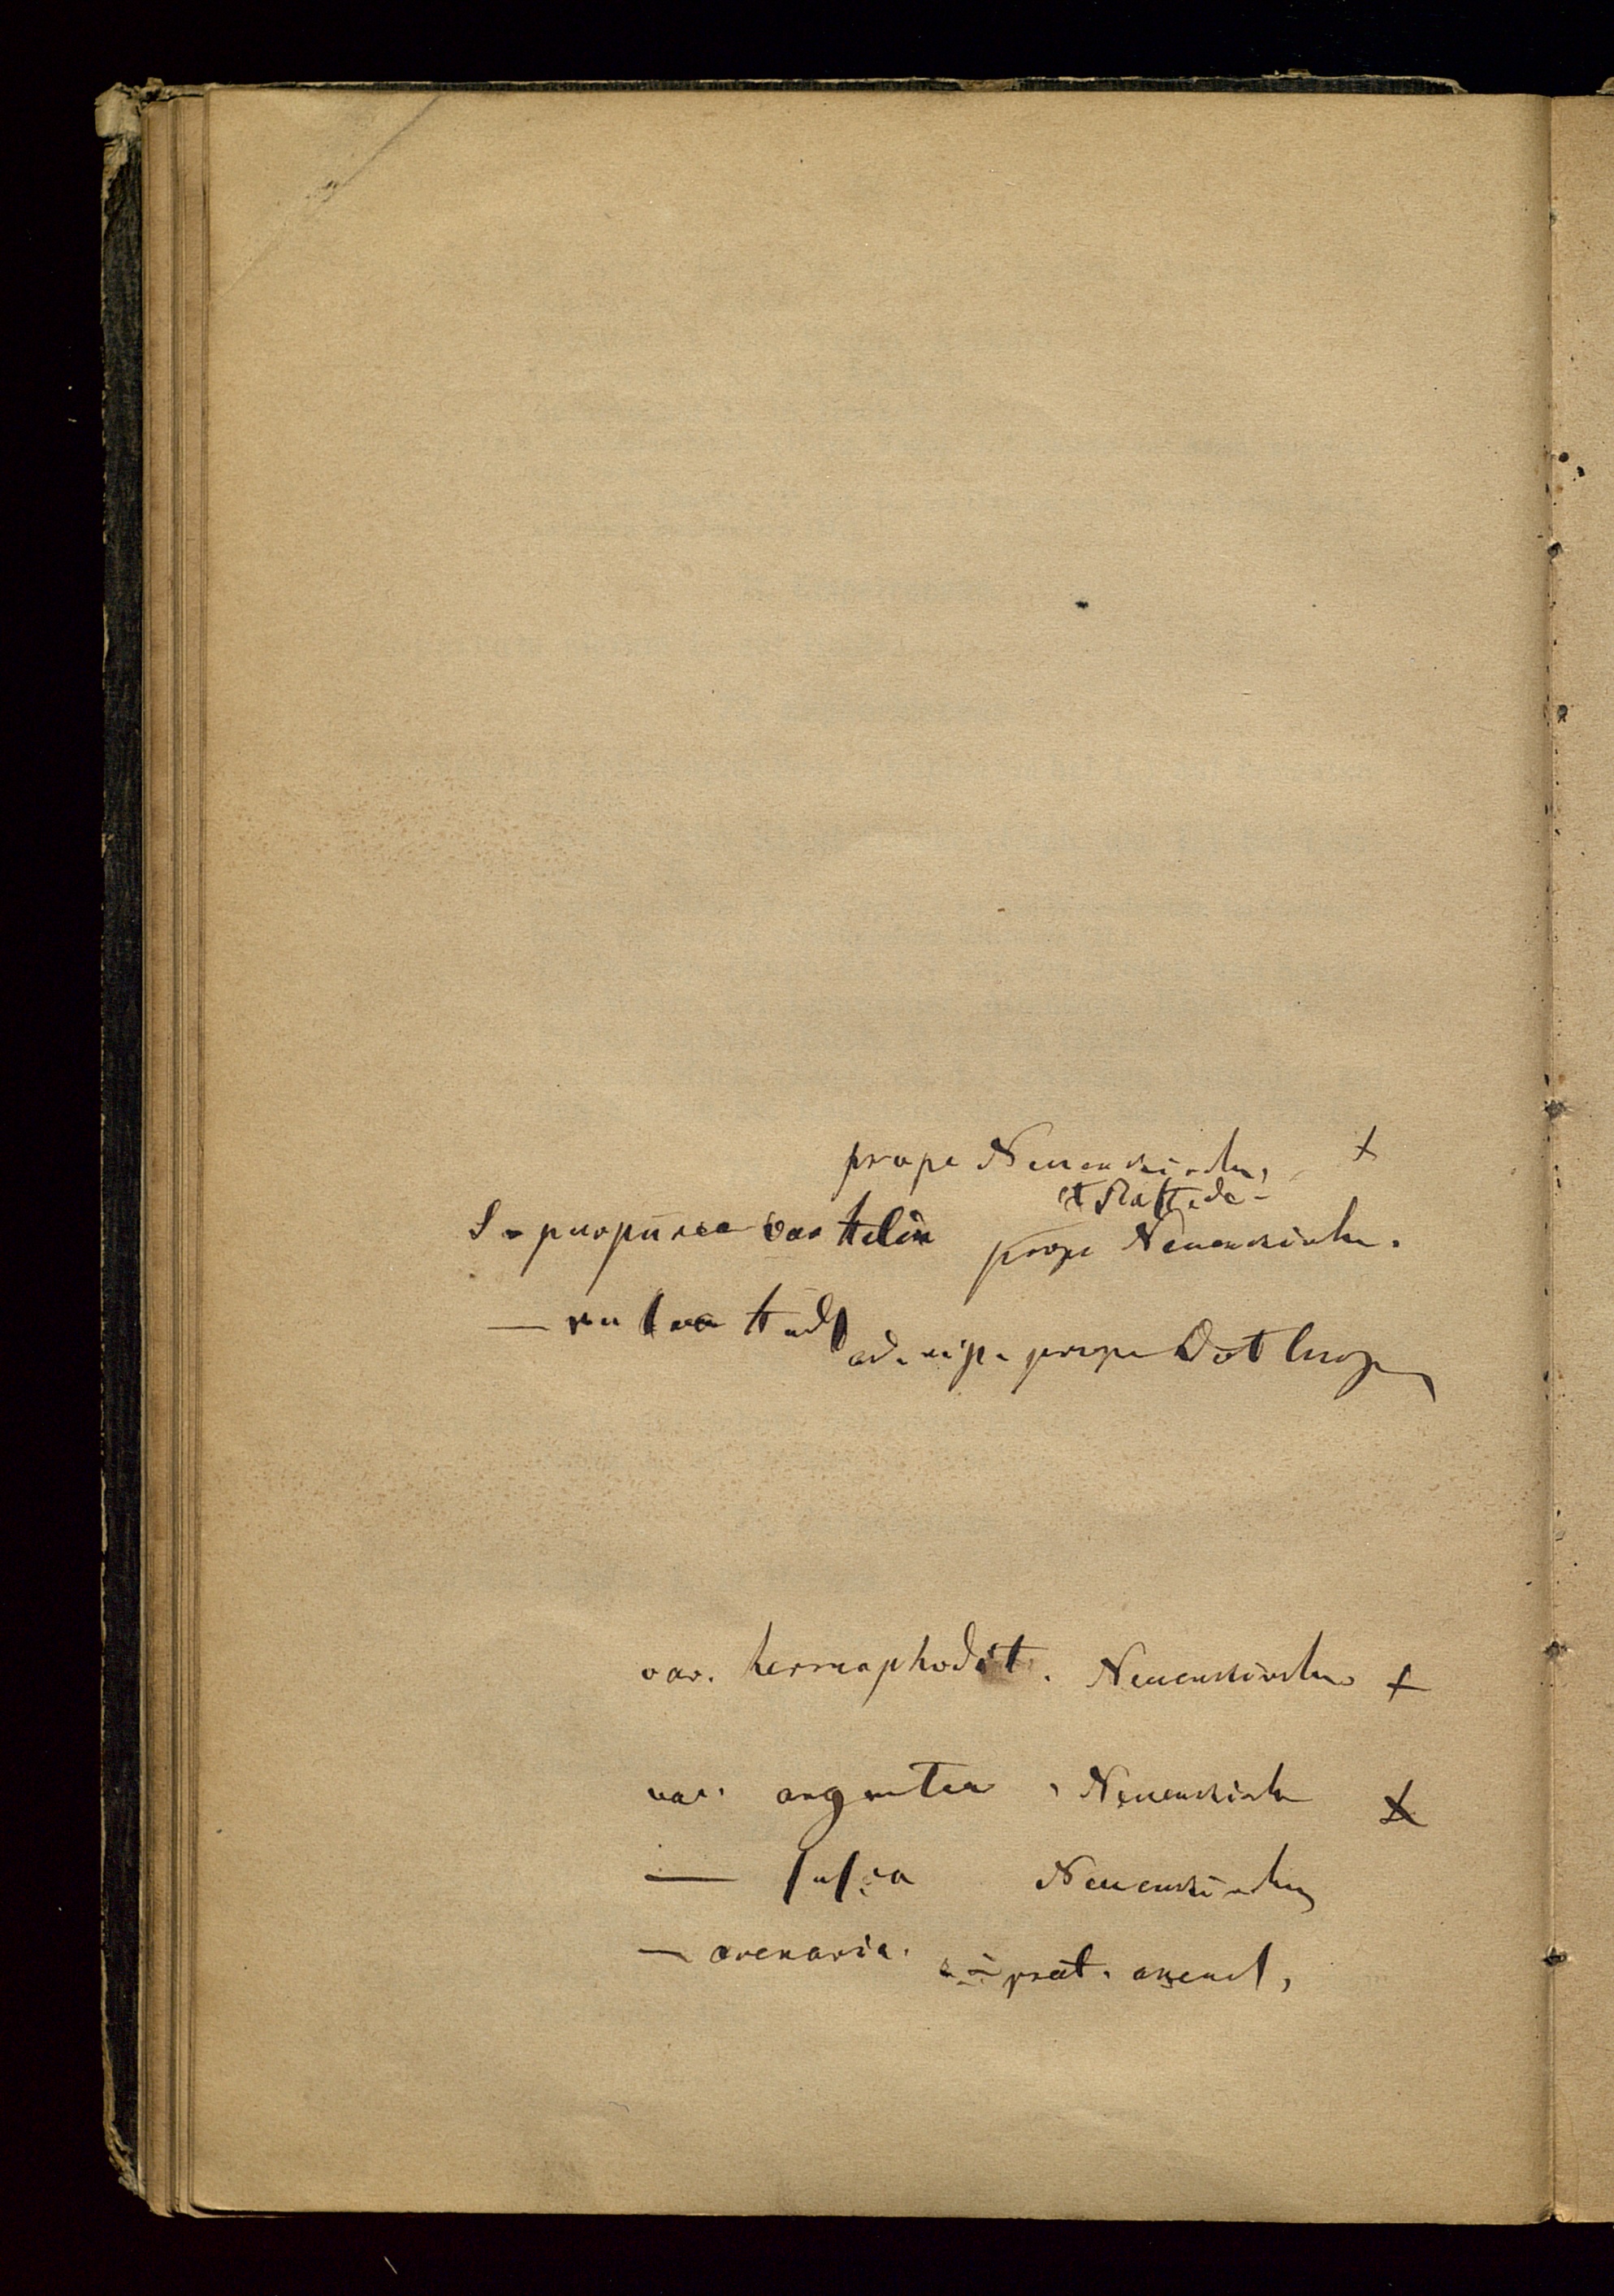 prope Neuenkirchen, +
et Rastede
S. purpurea var Helix prope Neuenkirchen.
— rubra Huds ad. rip. prope Dötlingen
var. hermaphodit. Neuenkirchen +
var. argentea, Neuenkirchen +
— fusca Neuenkirchen
— arenaria. prat. arenos,